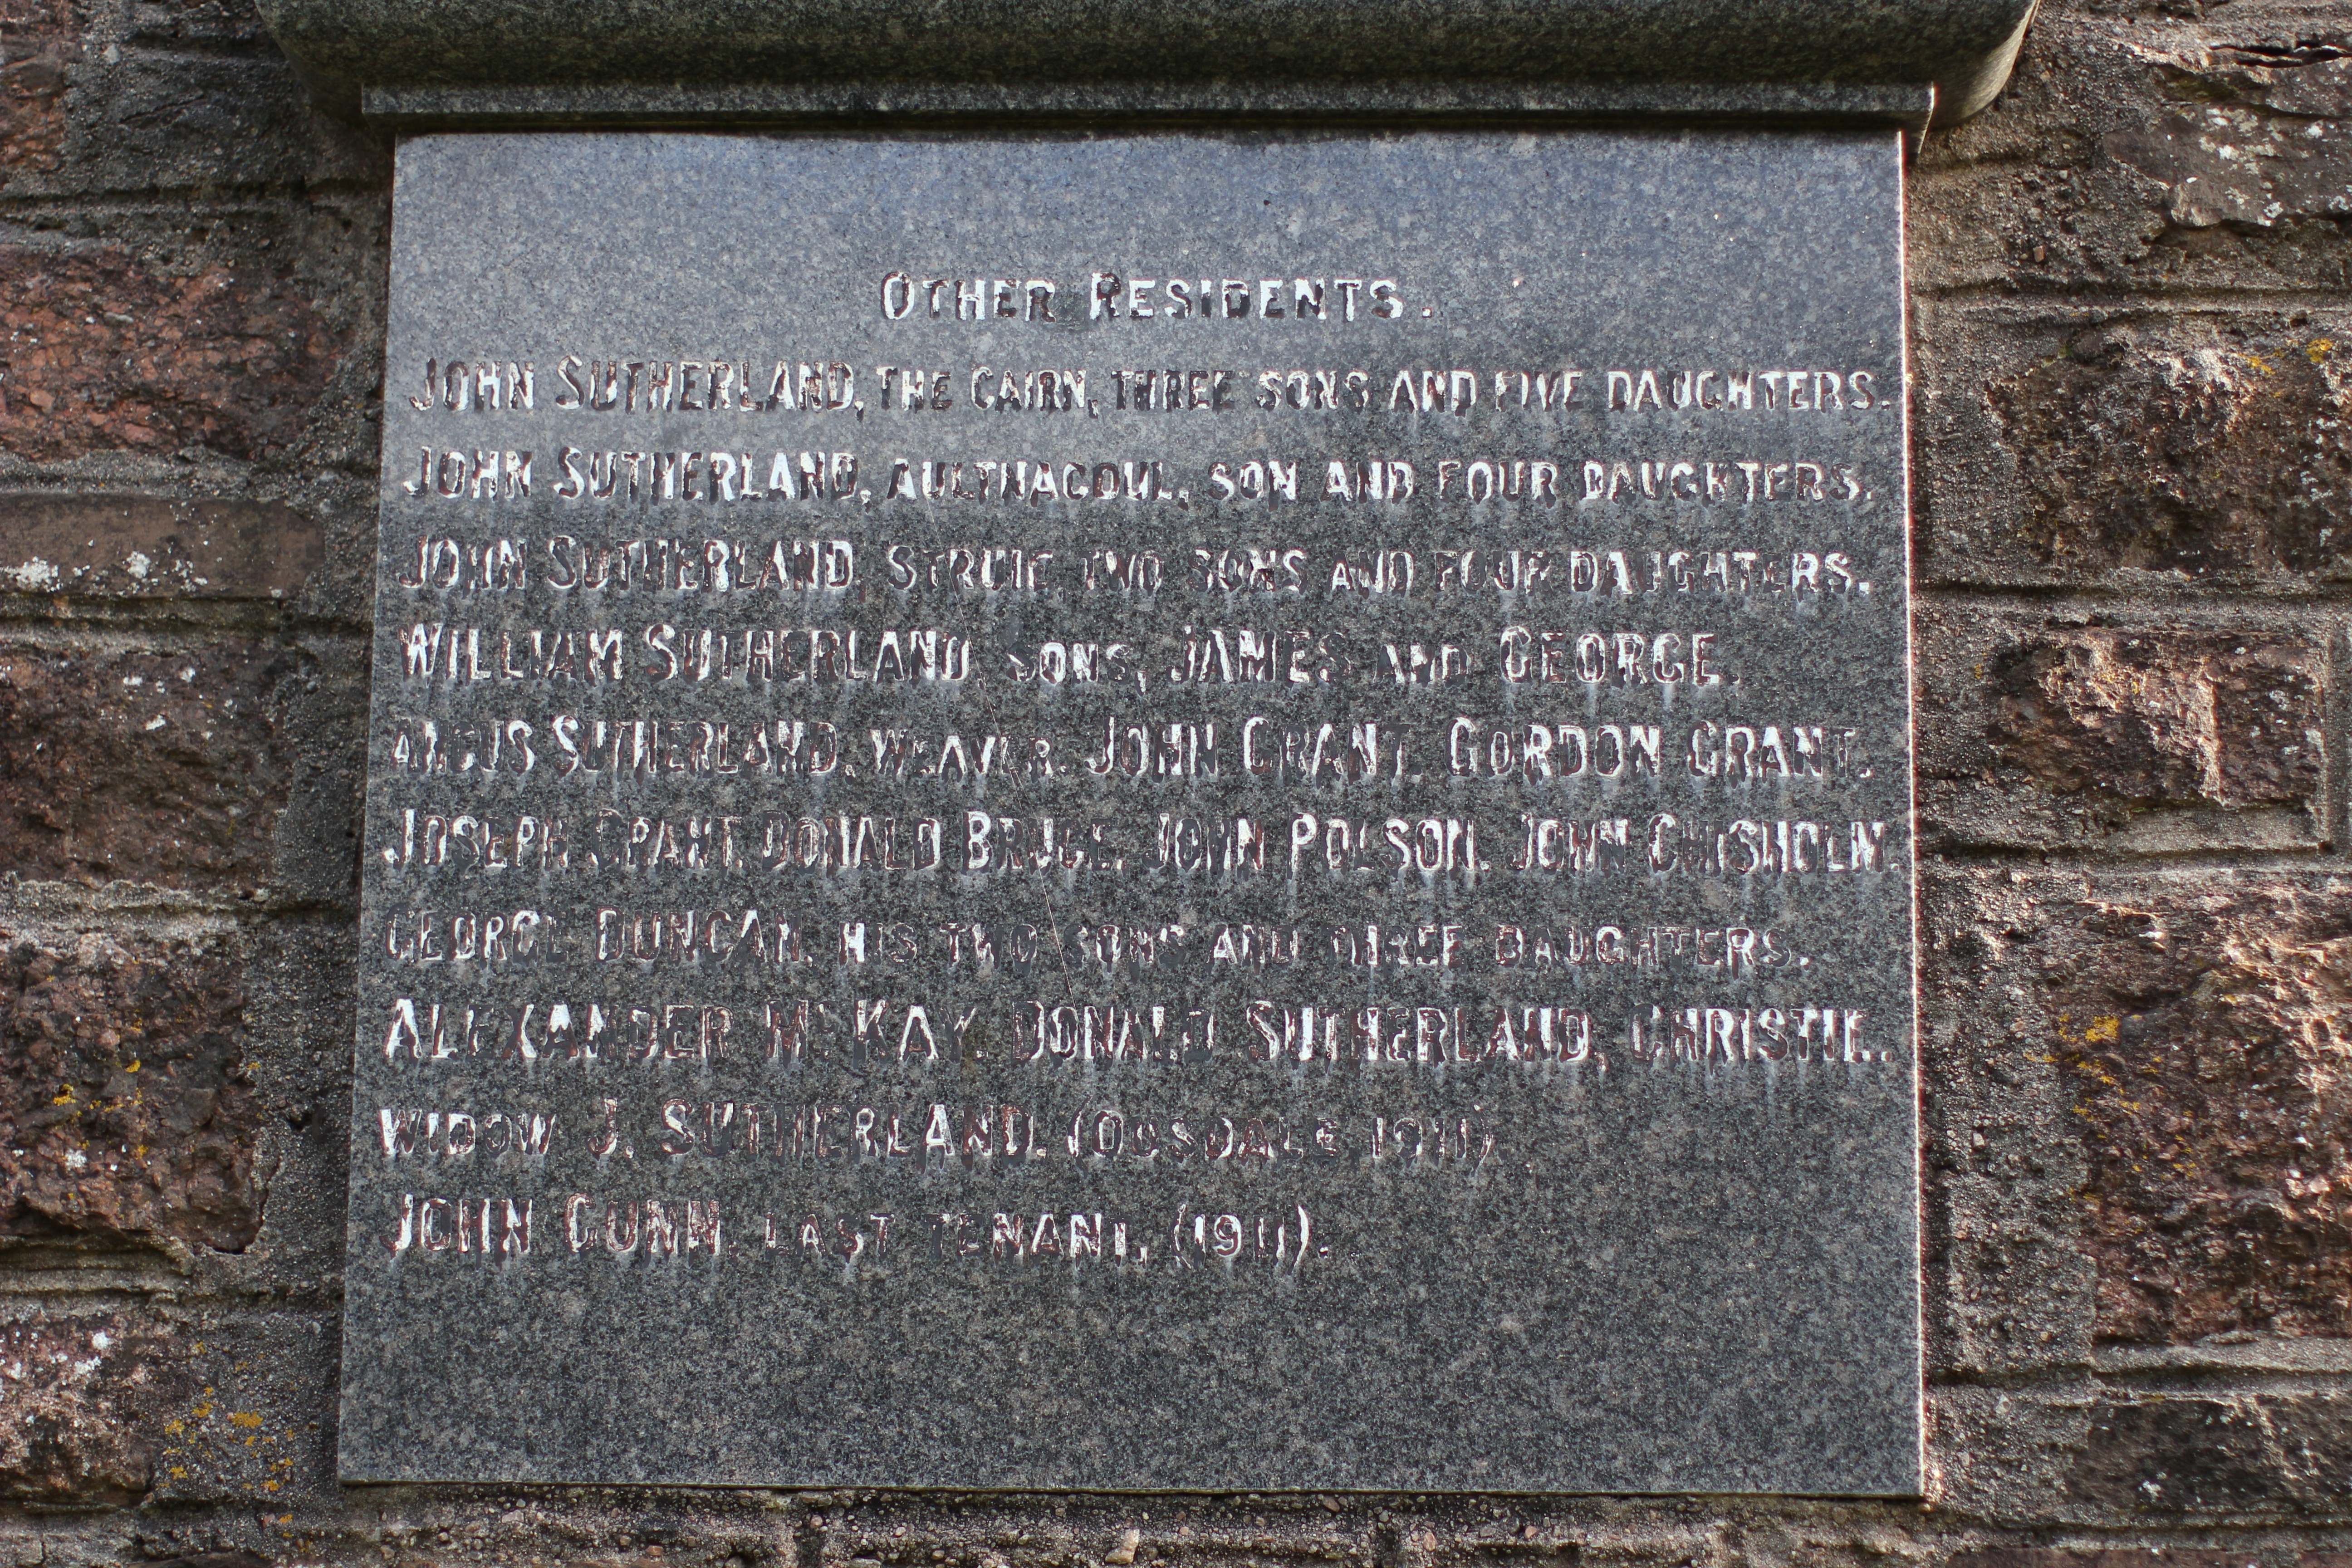 OTHER RESIDENTS.
JOHN SUTHERLAND, THE CAIRN, THREE SONS AND FIVE DAUGHTERS.
JOHN SUTHERLAND, AULTNACOUL, SON AND FOUR DAUGHTERS.
JOHN SUTHERLAND, STRUIE, TWO SONS AND FOUR DAUGHTERS.
WILLIAM SUTHERLAND, SONS, JAMES AND GEORGE.
ANGUS SUTHERLAND, WEAVER. JOHN GRANT. GORDON GRANT.
JOSEPH GRANT. DONALD BRUCE. JOHN POLSON. JOHN CHISHOLM.
GEORGE DUNCAN, HIS TWO SONS AND THREE DAUGHTERS.
ALEXANDER McKAY. DONALD SUTHERLAND, CHRISTIE.
WIDOW J. SUTHERLAND. (OUSDALE, 1911)
JOHN GUNN, LAST TENANT, (1911).